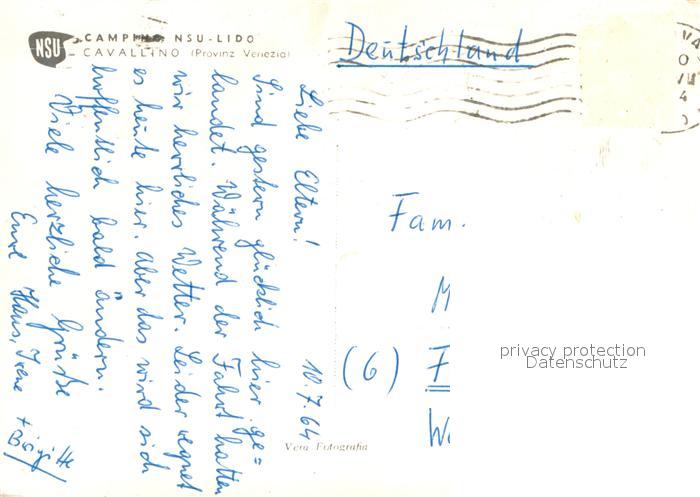 NSU
CAMPING NSU-LIDO
CAVALLINO (Provinz Venezia)
Deutschland
Liebe Eltern! 10.7.64
Sind gestern glücklich hier ge=
landet. Während der Fahrt hatten
wir herrliches Wetter. Leider regnet
es heute hier. Aber das wird sich
hoffentlich bald ändern.
Viele herzliche Grüße
Eure Hans, Irene
+ Birgitte
Fam.
M
(6) F
W
privacy protection
Datenschutz
Vera Fotografia